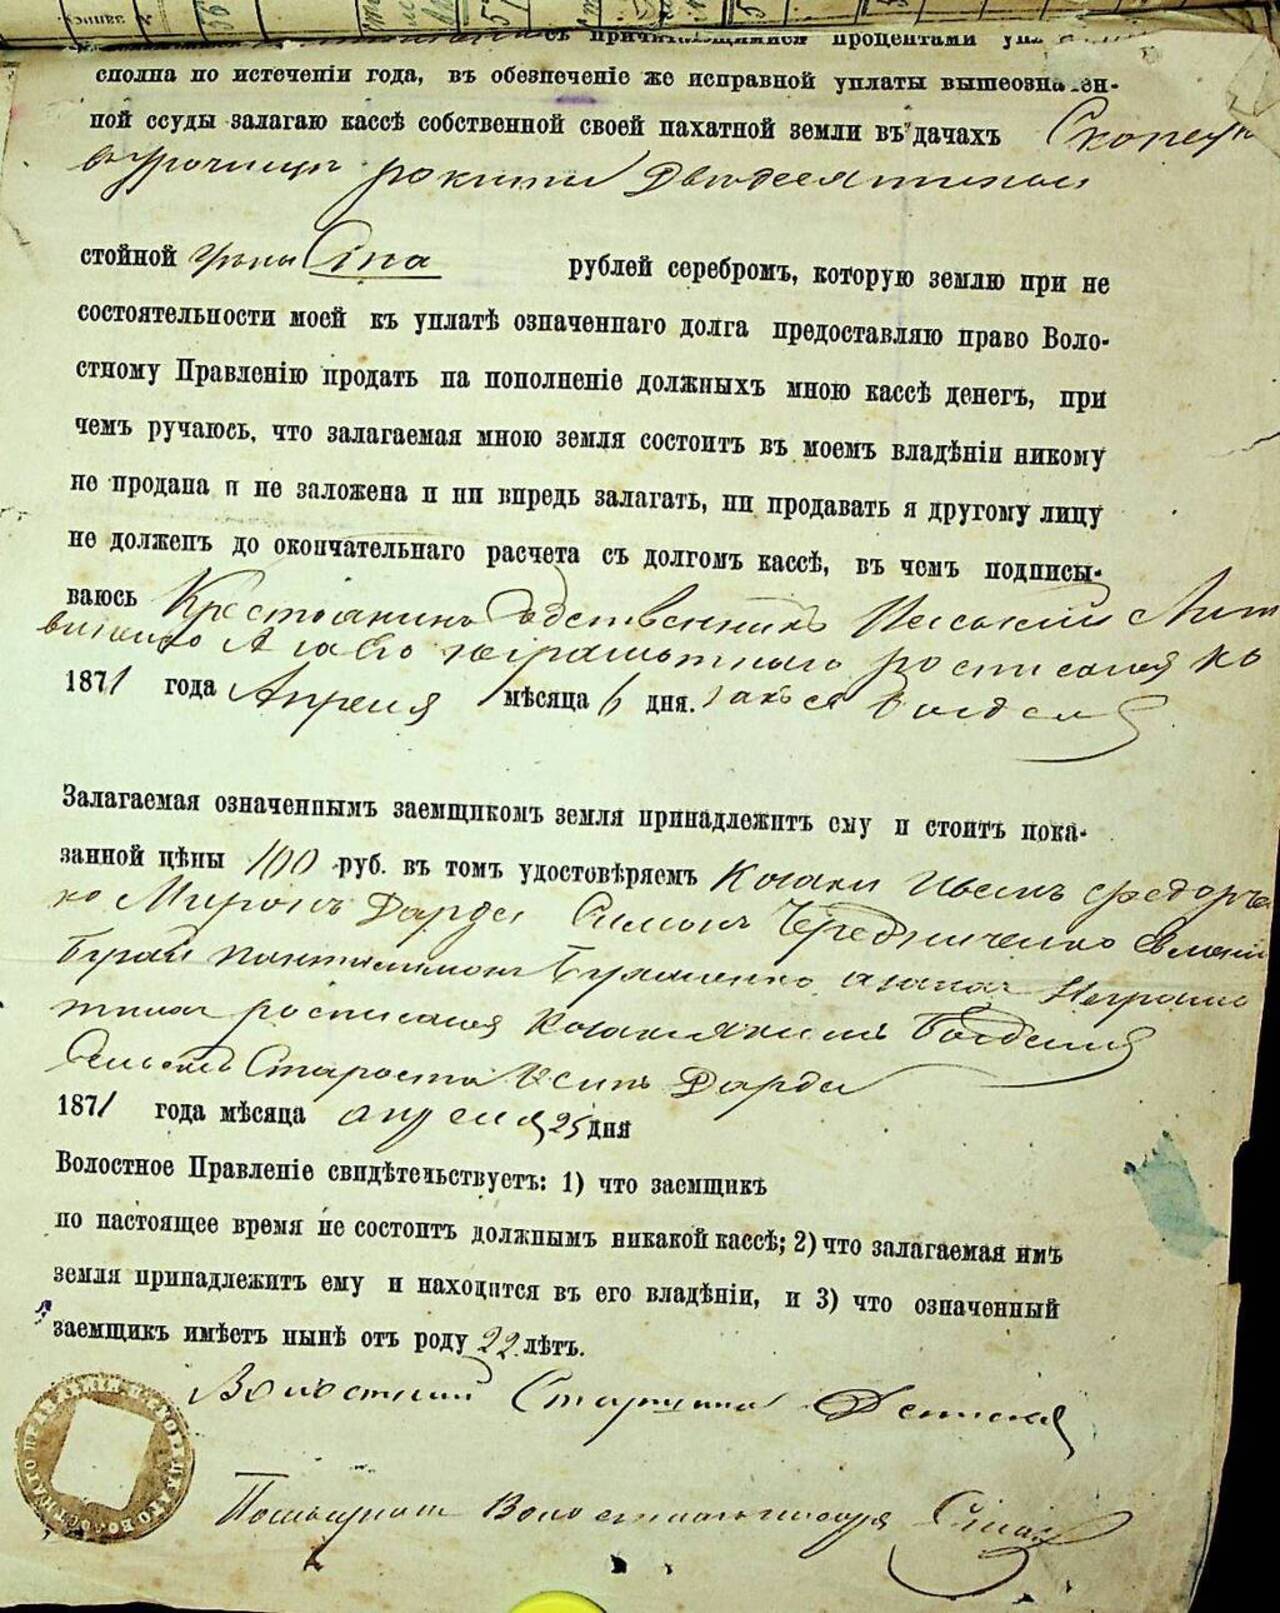 съ причитающимися процентами
сполна по истеченіи года, въ обезпеченіе же исправной уплаты вышеозначен-
ной ссуды залагаю кассѣ собственной своей пахатной земли въ дачахъ
стойной цены Ста рублей серебромъ, которую землю при не
состоятельности моей къ уплатѣ означеннаго долга предоставляю право Воло-
стному Правленію продать на пополненіе должныхъ мною кассѣ денегъ, при
чемъ ручаюсь, что залагаемая мною земля состоитъ въ моемъ владѣніи никому
не продана и не заложена и ни впредь залагать, ни продавать я другому лицу
не долженъ до окончательнаго расчета съ долгомъ кассѣ, въ чемъ подписы-
ваюсь Крестьянинъ Собственникъ Лит
виненко А за его неграмотного росписался ко
1871 года Апреля мѣсяца 6 дня.
Залагаемая означеннымъ заемщикомъ земля принадлежитъ ему и стоитъ пока-
занной цѣны 100 руб. въ томъ удостовѣряемъ Козаки Федорче
ко Миронъ Дарда Симонъ Чередниченко
Бурай а за нихъ Неграмо
тныхъ росписался Козакъ
Сельскій Староста Осипъ Дарда
1871 года мѣсяца апреля 25 дня
Волостное Правленіе свидѣтельствуетъ: 1) что заемщикъ
по настоящее время не состоитъ должнымъ никакой кассѣ; 2) что залагаемая имъ
земля принадлежитъ ему и находится въ его владѣніи, и 3) что означенный
заемщикъ имѣетъ нынѣ отъ роду 22 лѣтъ.
Волостной Старшина
Волостнаго писаря